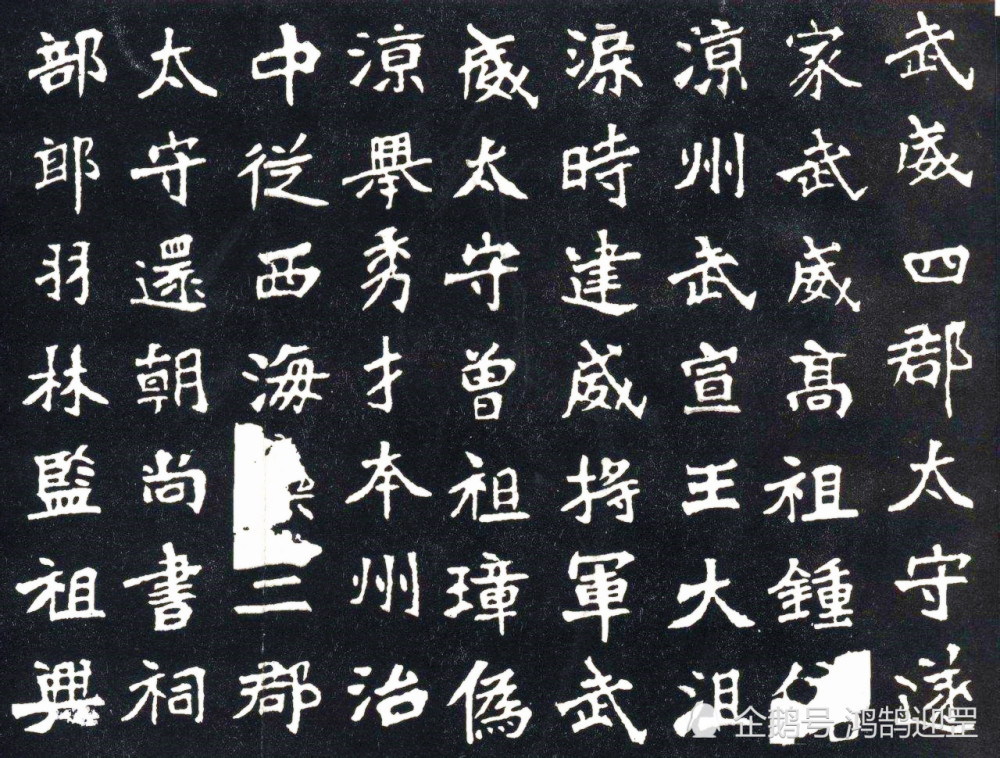 武威四郡太守遂
家武威高祖鍾
涼州武宣王大沮
渠時建威將軍武
威太守曾祖璋偽
涼舉秀才本州治
中從西海二郡
太守還朝尚書祠
部郎羽林監祖興
企鹅号 鸿鹄迎罡